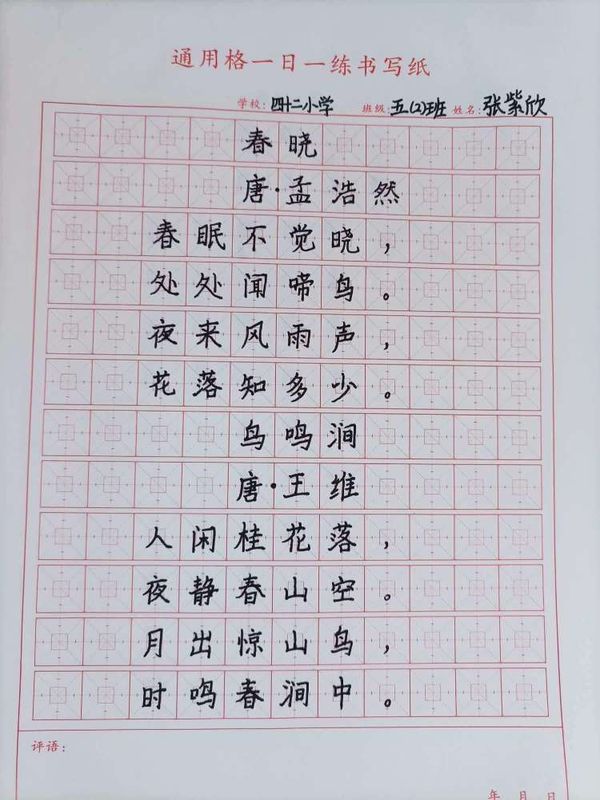 通用格一日一练书写纸
学校：四十二小学 班级：五(2)班 姓名：张紫欣
春晓
唐·孟浩然
春眠不觉晓，
处处闻啼鸟。
夜来风雨声，
花落知多少。
鸟鸣涧
唐·王维
人闲桂花落，
夜静春山空。
月出惊山鸟，
时鸣春涧中。
评语：
年 月 日